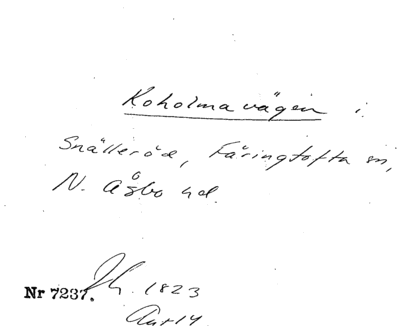 Koholmavägen i
Snälleröd, Färingtofta sn,
N. Åsbo hd.
Nr 7237.
1823